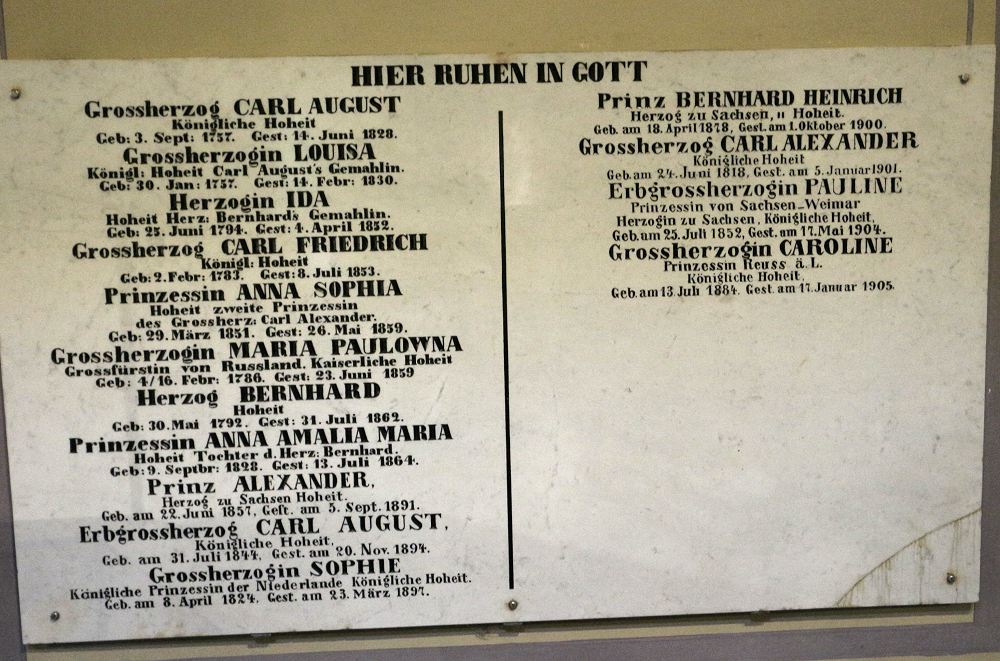 HIER RUHEN IN GOTT
Grossherzog CARL AUGUST
Königliche Hoheit
Geb: 3. Sept: 1757. Gest: 14. Juni 1828.
Grossherzogin LOUISA
Königl: Hoheit Carl August's Gemahlin.
Geb: 30. Jan: 1757. Gest: 14. Febr: 1830.
Herzogin IDA
Hoheit Herz: Bernhard's Gemahlin.
Geb: 25. Juni 1794. Gest: 4. April 1852.
Grossherzog CARL FRIEDRICH
Königl: Hoheit
Geb: 2. Febr: 1783. Gest: 8. Juli 1853.
Prinzessin ANNA SOPHIA
Hoheit zweite Prinzessin
des Grossherz: Carl Alexander.
Geb: 29. März 1851. Gest: 26. Mai 1859.
Grossherzogin MARIA PAULOWNA
Grossfürstin von Russland. Kaiserliche Hoheit
Geb: 4/16. Febr: 1786. Gest: 23. Juni 1859
Herzog BERNHARD
Hoheit
Geb: 30. Mai 1792. Gest: 31. Juli 1862.
Prinzessin ANNA AMALIA MARIA
Hoheit Tochter d. Herz: Bernhard.
Geb: 9. Septbr: 1828. Gest: 13. Juli 1864.
Prinz ALEXANDER,
Herzog zu Sachsen Hoheit.
Geb. am 22. Juni 1857, Gest. am 5. Sept. 1891.
Erbgrossherzog CARL AUGUST,
Königliche Hoheit,
Geb. am 31. Juli 1844, Gest. am 20. Nov. 1894.
Grossherzogin SOPHIE
Königliche Prinzessin der Niederlande Königliche Hoheit.
Geb. am 8. April 1824, Gest. am 23. März 1897.
Prinz BERNHARD HEINRICH
Herzog zu Sachsen, " Hoheit.
Geb. am 18. April 1878, Gest. am 1. Oktober 1900.
Grossherzog CARL ALEXANDER
Königliche Hoheit
Geb. am 24. Juni 1818, Gest. am 5. Januar 1901.
Erbgrossherzogin PAULINE
Prinzessin von Sachsen-Weimar
Herzogin zu Sachsen, Königliche Hoheit,
Geb. am 25. Juli 1852, Gest. am 17. Mai 1904.
Grossherzogin CAROLINE
Prinzessin Reuss ä. L.
Königliche Hoheit,
Geb. am 13. Juli 1884. Gest. am 17. Januar 1905.